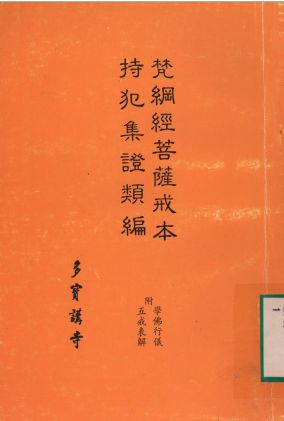 梵網經菩薩戒本
持犯集證類編
學佛行儀
附
五戒表解
多寶講寺